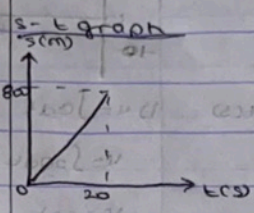 s - t graph
s(m)
800
0
20
t(s)